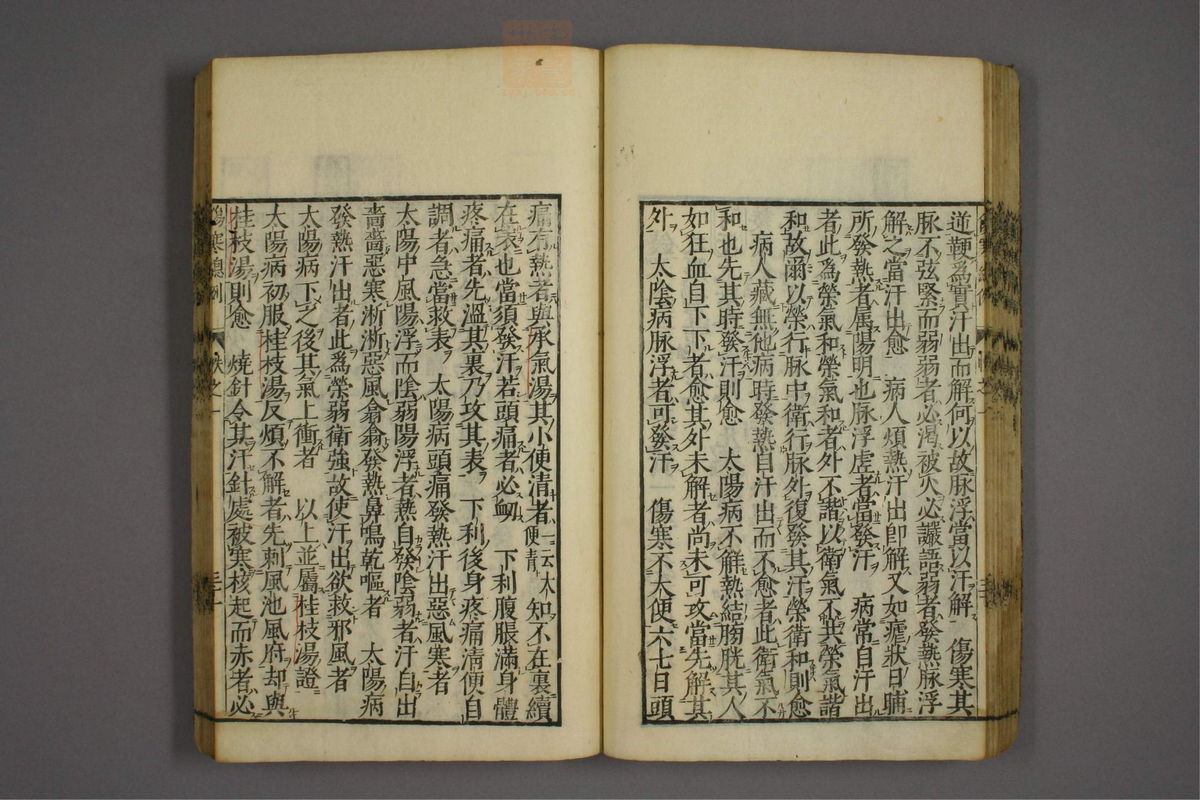 道鞕爲實汗出而解何以故脉浮當以汗解　傷寒其
脉不弦緊而弱弱者必渴被火必讝語弱者發熱脉浮
解之當汗出愈　病人煩熱汗出即解又如瘧狀日晡
所發熱者属陽明也脉浮虛者當發汗　病常自汗出
者此爲榮氣和榮氣和者外不諧以衛氣不共榮氣諧
和故爾以榮行脉中衛行脉外復發其汗榮衛和則愈
病人藏無他病時發熱自汗出而不愈者此衛氣不
和也先其時發汗則愈　太陽病不解熱結膀胱其人
如狂血自下下者愈其外未解者尚未可攻當先解其
外　太陰病脉浮者可發汗　傷寒不大便六七日頭
痛有熱者與承氣湯其小便清者一云大便青知不在裏續
在表也當須發汗若頭痛者必衂　下利腹脹滿身體
疼痛者先溫其裏乃攻其表　下利後身疼痛清便自
調者急當救表　太陽病頭痛發熱汗出惡風寒者
太陽中風陽浮而陰弱陽浮者熱自發陰弱者汗自出
嗇嗇惡寒淅淅惡風翕翕發熱鼻鳴乾嘔者　太陽病
發熱汗出者此爲榮弱衛強故使汗出欲救邪風者
太陽病下之後其氣上衝者　以上並屬桂枝湯證
太陽病初服桂枝湯反煩不解者先刺風池風府却與
桂枝湯則愈　燒針令其汗針處被寒核起而赤者必